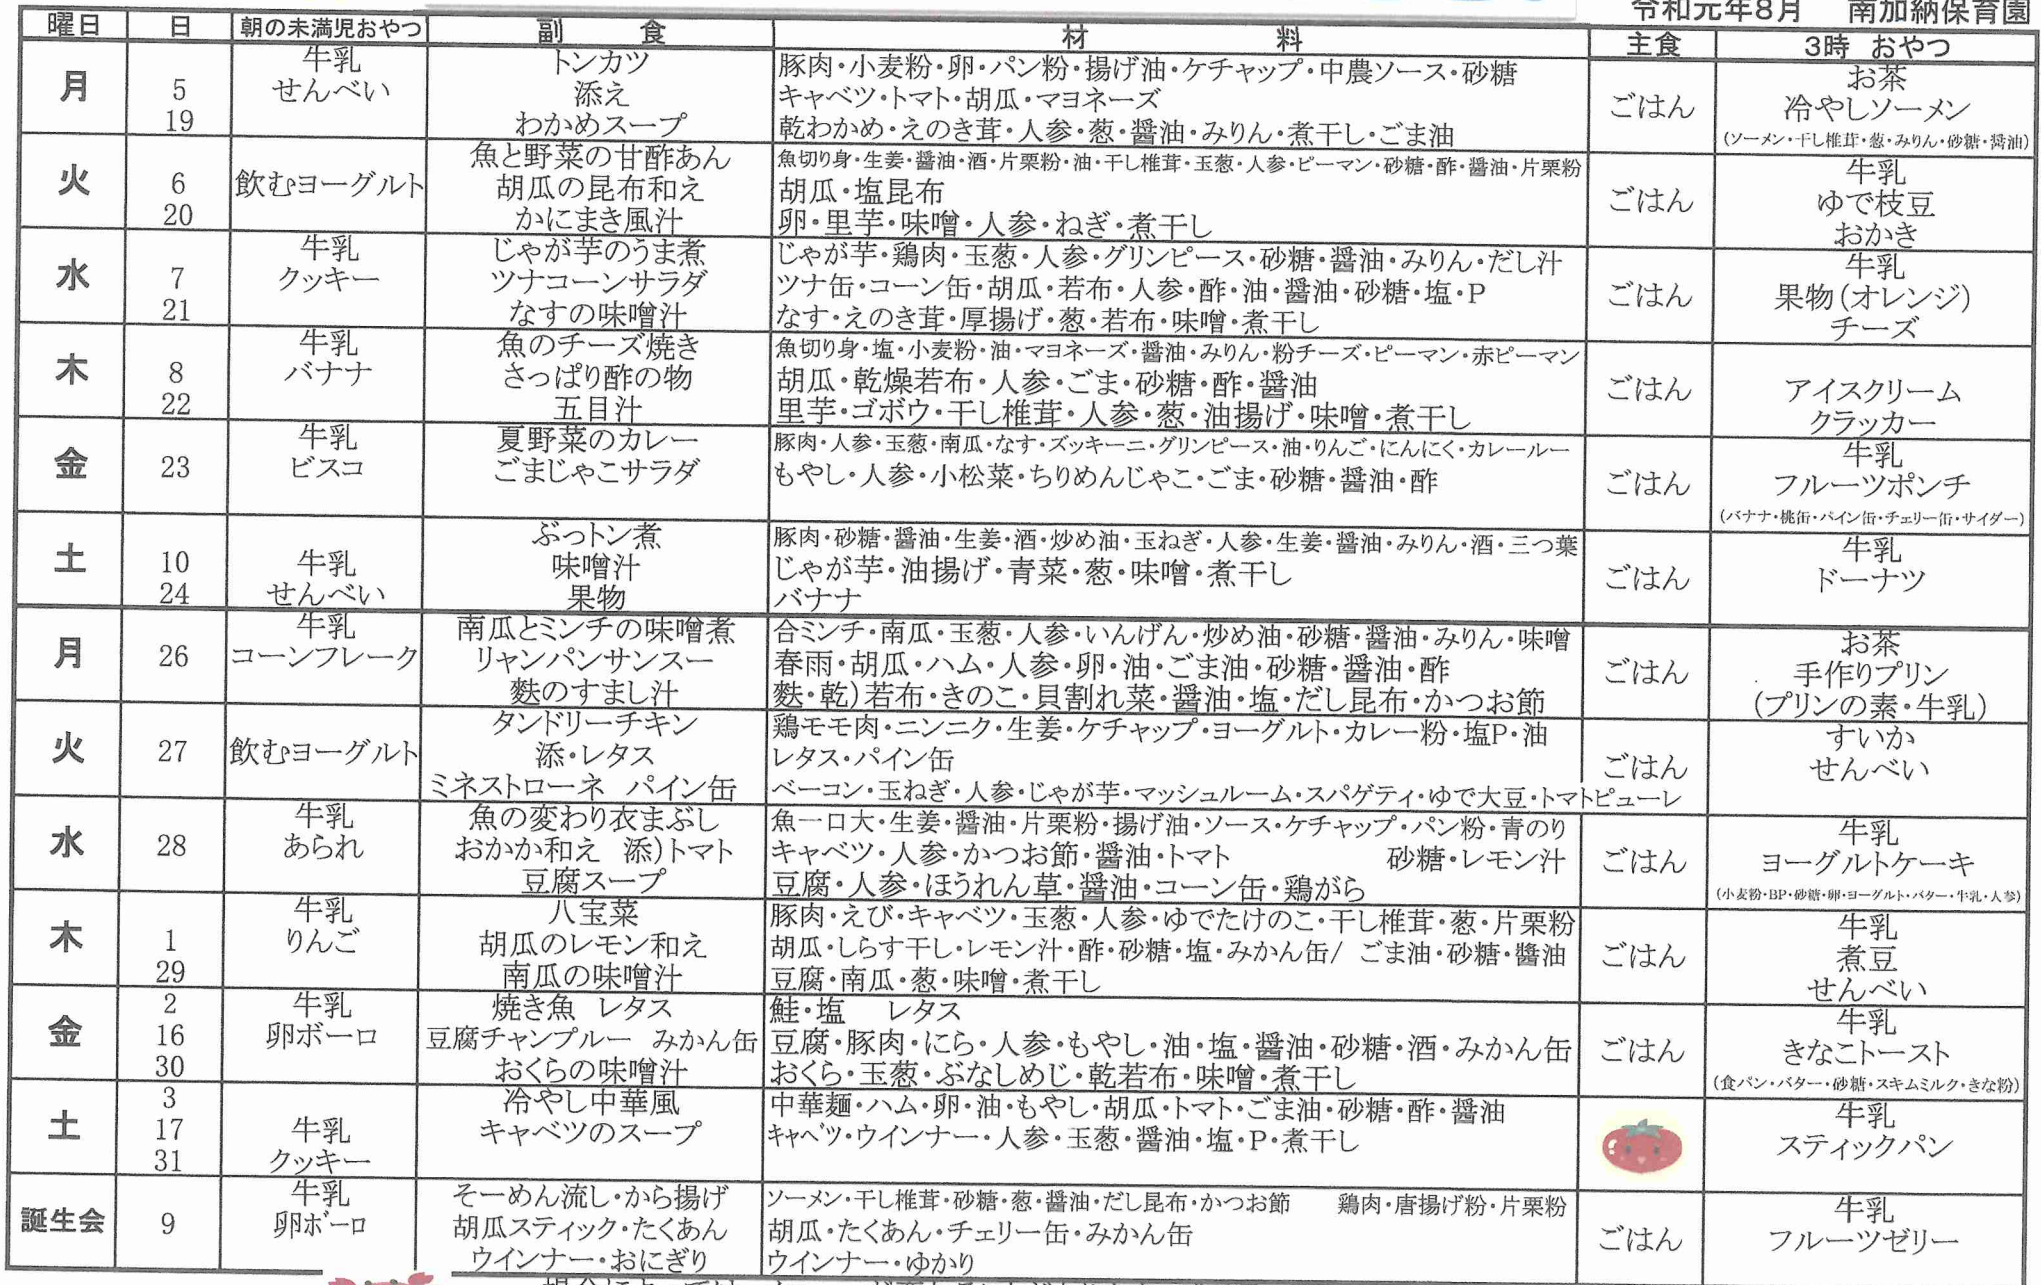 令和元年8月　南加納保育園
曜日　日　朝の未満児おやつ　副　食　材　料　主食　3時　おやつ
月
5
19
牛乳
せんべい
トンカツ
添え
わかめスープ
豚肉・小麦粉・卵・パン粉・揚げ油・ケチャップ・中農ソース・砂糖
キャベツ・トマト・胡瓜・マヨネーズ
乾わかめ・えのき茸・人参・葱・醤油・みりん・煮干し・ごま油
ごはん
お茶
冷やしソーメン
(ソーメン・干し椎茸・葱・みりん・砂糖・醤油)
火
6
20
飲むヨーグルト
魚と野菜の甘酢あん
胡瓜の昆布和え
かにまき風汁
魚切り身・生姜・醤油・酒・片栗粉・油・干し椎茸・玉葱・人参・ピーマン・砂糖・酢・醤油・片栗粉
胡瓜・塩昆布
卵・里芋・味噌・人参・ねぎ・煮干し
ごはん
牛乳
ゆで枝豆
おかき
水
7
21
牛乳
クッキー
じゃが芋のうま煮
ツナコーンサラダ
なすの味噌汁
じゃが芋・鶏肉・玉葱・人参・グリンピース・砂糖・醤油・みりん・だし汁
ツナ缶・コーン缶・胡瓜・若布・人参・酢・油・醤油・砂糖・塩・P
なす・えのき茸・厚揚げ・葱・若布・味噌・煮干し
ごはん
牛乳
果物(オレンジ)
チーズ
木
8
22
牛乳
バナナ
魚のチーズ焼き
さっぱり酢の物
五目汁
魚切り身・塩・小麦粉・油・マヨネーズ・醤油・みりん・粉チーズ・ピーマン・赤ピーマン
胡瓜・乾燥若布・人参・ごま・砂糖・酢・醤油
里芋・ゴボウ・干し椎茸・人参・葱・油揚げ・味噌・煮干し
ごはん
アイスクリーム
クラッカー
金
23
牛乳
ビスコ
夏野菜のカレー
ごまじゃこサラダ
豚肉・人参・玉葱・南瓜・なす・ズッキーニ・グリンピース・油・りんご・にんにく・カレールー
もやし・人参・小松菜・ちりめんじゃこ・ごま・砂糖・醤油・酢
ごはん
牛乳
フルーツポンチ
(バナナ・桃缶・パイン缶・チェリー缶・サイダー)
土
10
24
牛乳
せんべい
ぶっトン煮
味噌汁
果物
豚肉・砂糖・醤油・生姜・酒・炒め油・玉ねぎ・人参・生姜・醤油・みりん・酒・三つ葉
じゃが芋・油揚げ・青菜・葱・味噌・煮干し
バナナ
ごはん
牛乳
ドーナツ
月
26
牛乳
コーンフレーク
南瓜とミンチの味噌煮
リャンパンサンスー
麩のすまし汁
合ミンチ・南瓜・玉葱・人参・いんげん・炒め油・砂糖・醤油・みりん・味噌
春雨・胡瓜・ハム・人参・卵・油・ごま油・砂糖・醤油・酢
麩・乾)若布・きのこ・貝割れ菜・醤油・塩・だし昆布・かつお節
ごはん
お茶
手作りプリン
(プリンの素・牛乳)
火
27
飲むヨーグルト
タンドリーチキン
添・レタス
ミネストローネ　パイン缶
鶏モモ肉・ニンニク・生姜・ケチャップ・ヨーグルト・カレー粉・塩P・油
レタス・パイン缶
ベーコン・玉ねぎ・人参・じゃが芋・マッシュルーム・スパゲティ・ゆで大豆・トマトピューレ
ごはん
すいか
せんべい
水
28
牛乳
あられ
魚の変わり衣まぶし
おかか和え　添)トマト
豆腐スープ
魚一口大・生姜・醤油・片栗粉・揚げ油・ソース・ケチャップ・パン粉・青のり
キャベツ・人参・かつお節・醤油・トマト　砂糖・レモン汁
豆腐・人参・ほうれん草・醤油・コーン缶・鶏がら
ごはん
牛乳
ヨーグルトケーキ
(小麦粉・BP・砂糖・卵・ヨーグルト・バター・牛乳・人参)
木
1
29
牛乳
りんご
八宝菜
胡瓜のレモン和え
南瓜の味噌汁
豚肉・えび・キャベツ・玉葱・人参・ゆでたけのこ・干し椎茸・葱・片栗粉
胡瓜・しらす干し・レモン汁・酢・砂糖・塩・みかん缶/ ごま油・砂糖・醤油
豆腐・南瓜・葱・味噌・煮干し
ごはん
牛乳
煮豆
せんべい
金
2
16
30
牛乳
卵ボーロ
焼き魚　レタス
豆腐チャンプルー　みかん缶
おくらの味噌汁
鮭・塩　レタス
豆腐・豚肉・にら・人参・もやし・油・塩・醤油・砂糖・酒・みかん缶
おくら・玉葱・ぶなしめじ・乾若布・味噌・煮干し
ごはん
牛乳
きなこトースト
(食パン・バター・砂糖・スキムミルク・きな粉)
土
3
17
31
牛乳
クッキー
冷やし中華風
キャベツのスープ
中華麺・ハム・卵・油・もやし・胡瓜・トマト・ごま油・砂糖・酢・醤油
キャベツ・ウインナー・人参・玉葱・醤油・塩・P・煮干し
牛乳
スティックパン
誕生会
9
牛乳
卵ボーロ
そーめん流し・から揚げ
胡瓜スティック・たくあん
ウインナー・おにぎり
ソーメン・干し椎茸・砂糖・葱・醤油・だし昆布・かつお節　鶏肉・唐揚げ粉・片栗粉
胡瓜・たくあん・チェリー缶・みかん缶
ウインナー・ゆかり
ごはん
牛乳
フルーツゼリー